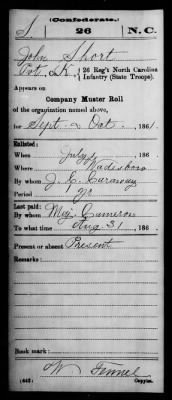 (Confederate.)
S. 26 N.C.
John Short
Pvt., K, 26 Reg't North Carolina
Infantry (State Troops).
Appears on
Company Muster Roll
of the organization named above,
for Sept. & Oct., 1861.
Enlisted:
When July, 186 .
Where Wadesboro
By whom J. C. Caraway
Period
Last paid:
By whom Maj. Cameron
To what time Aug 31, 186 .
Present or absent Present
Remarks:
Book mark:
W Fennel
(642) Copyist.